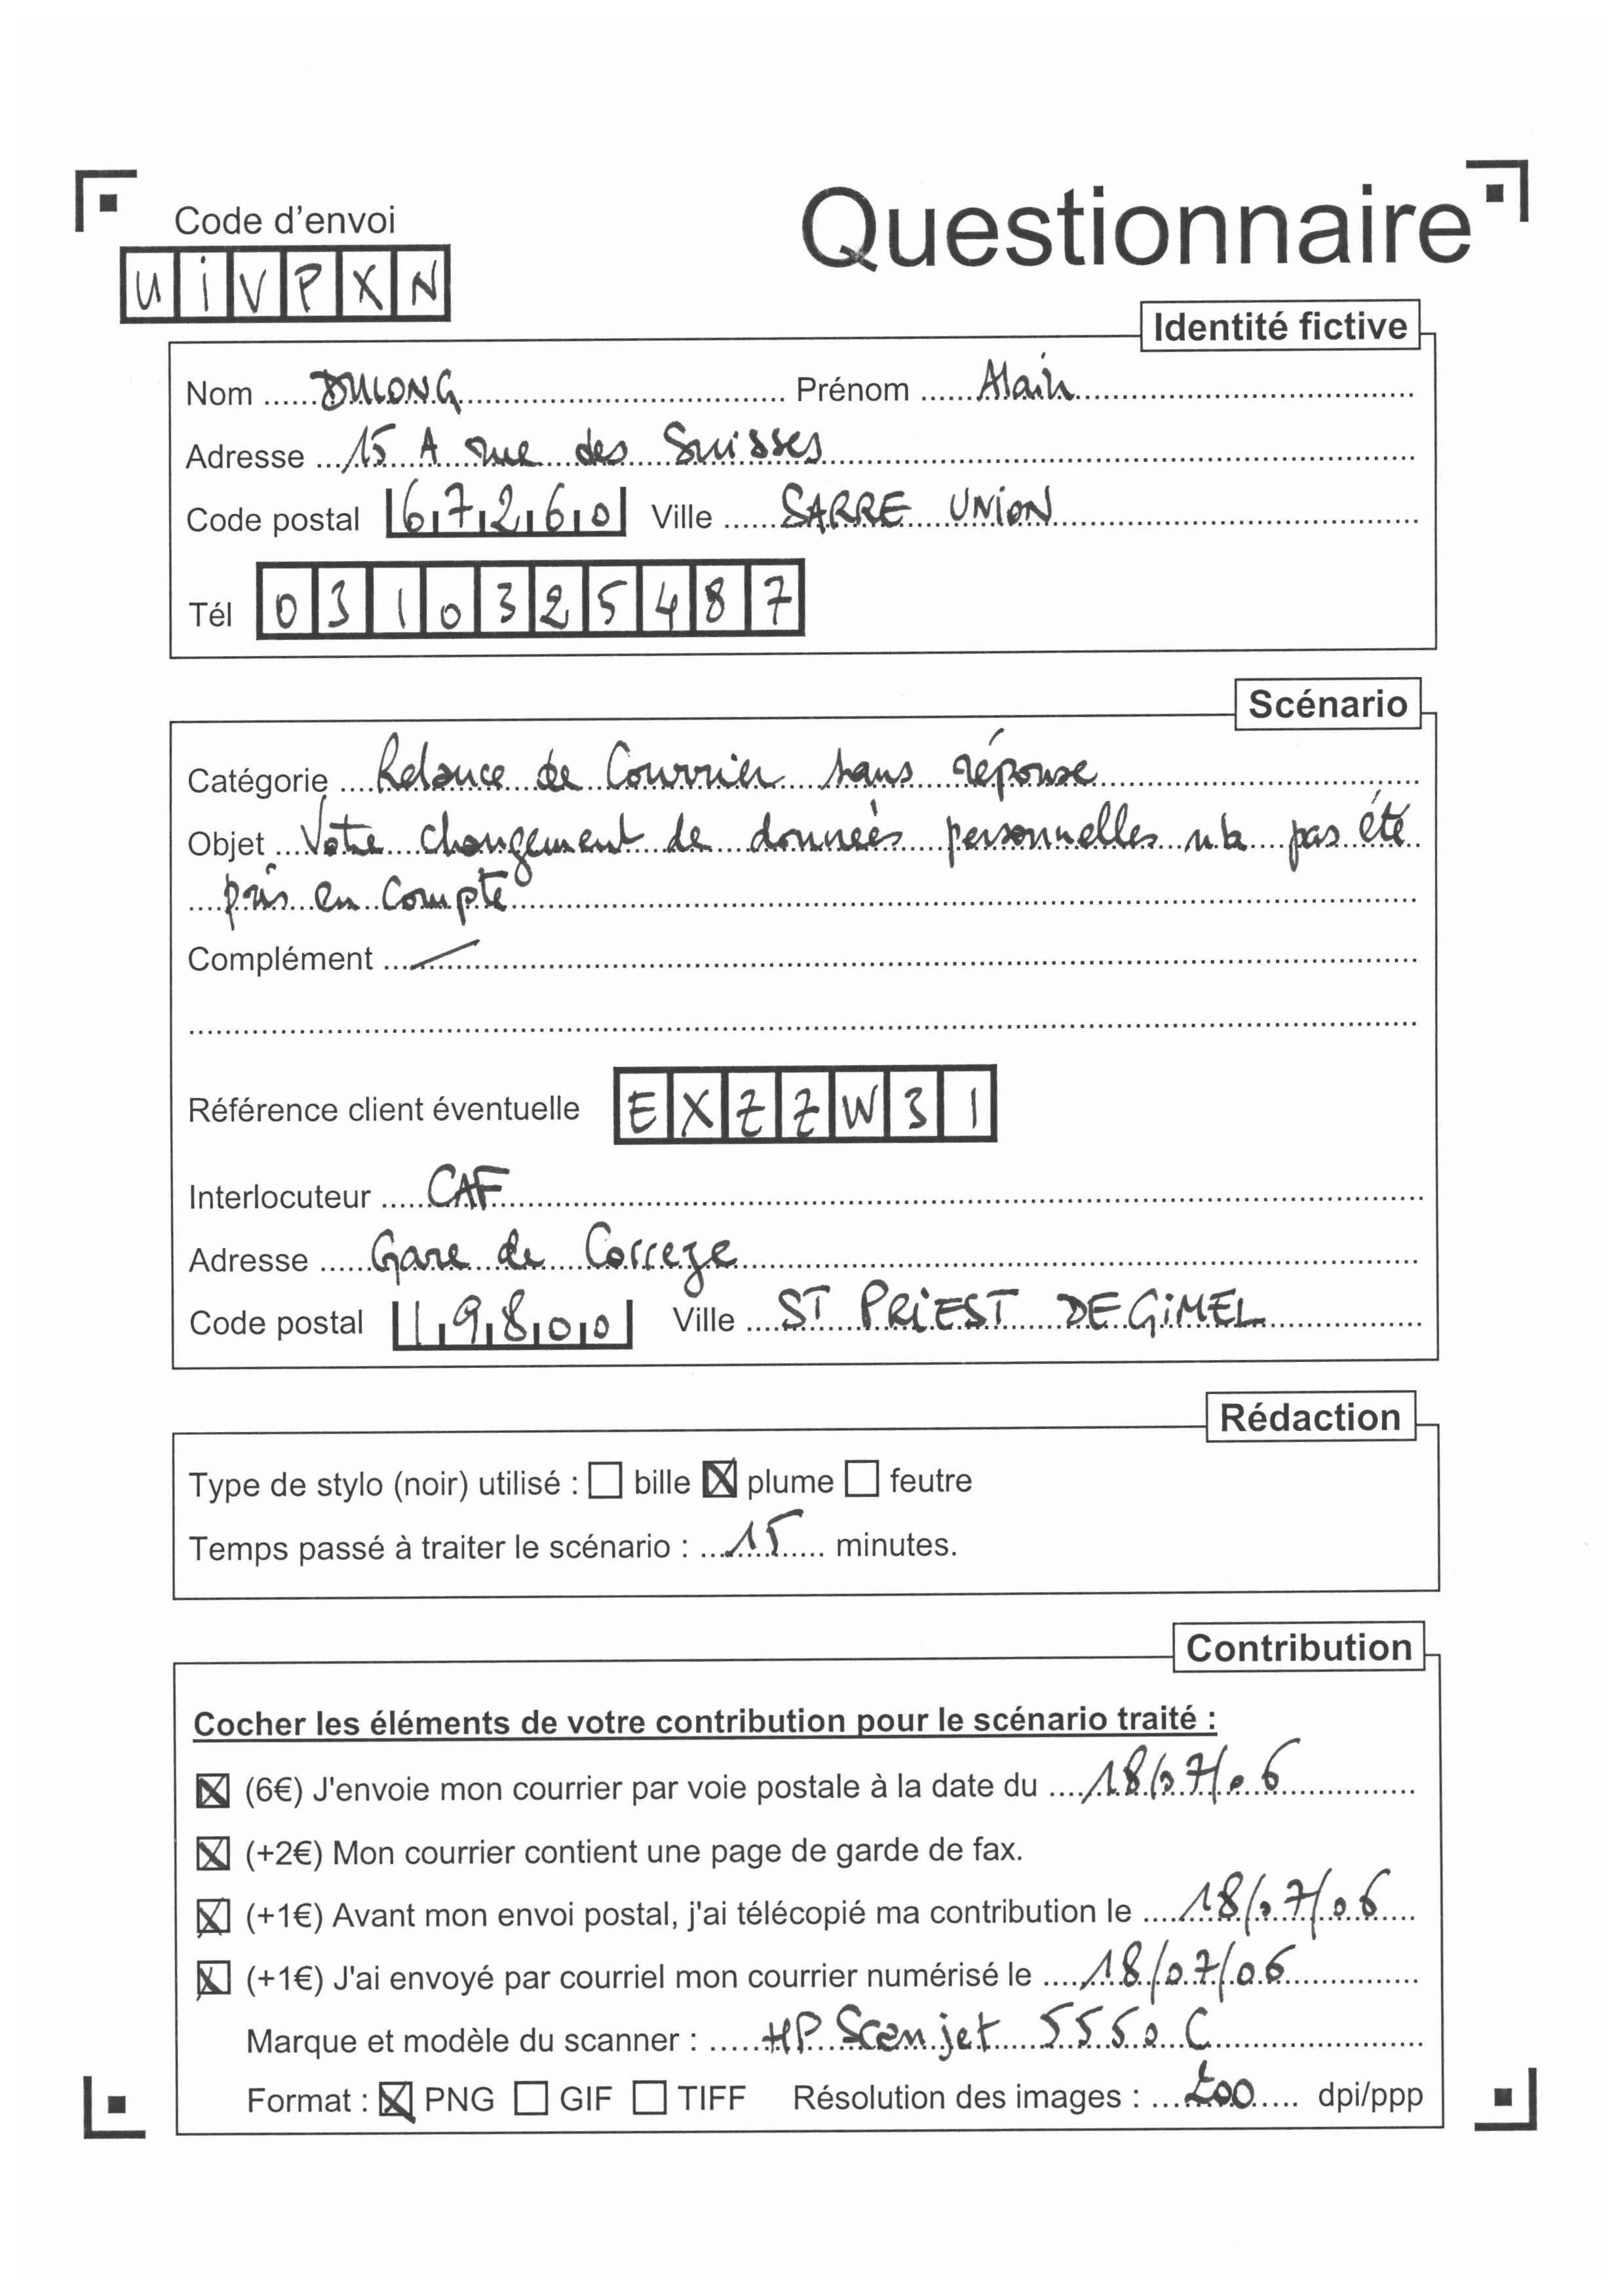 Questionnaire
Code d'envoi
UiVPXN
Identité fictive
Nom ...... DULONG ...... Prénom ...... Alain
Adresse ... 15 A rue des Suisses
Code postal 67260 Ville ...... SARRE UNiON
Tél 0310325487
Scénario
Catégorie .... Relance de Courrier sans réponse
Objet ... Votre changement de données personnelles n'a pas été
pris en compte
Complément ... /
Référence client éventuelle EXZZW31
Interlocuteur ..... CAF
Adresse ...... Gare de Correze
Code postal 19800 Ville ... ST PRiEST DE GiMEL
Rédaction
Type de stylo (noir) utilisé : ☐ bille ☒ plume ☐ feutre
Temps passé à traiter le scénario : ... 15 ... minutes.
Contribution
Cocher les éléments de votre contribution pour le scénario traité :
☒ (6€) J'envoie mon courrier par voie postale à la date du .... 18/07/06
☒ (+2€) Mon courrier contient une page de garde de fax.
☒ (+1€) Avant mon envoi postal, j'ai télécopié ma contribution le .... 18/07/06
☒ (+1€) J'ai envoyé par courriel mon courrier numérisé le .... 18/07/06
Marque et modèle du scanner : ..... HP Scanjet 5550 C
Format : ☒ PNG ☐ GIF ☐ TIFF Résolution des images : ... 200 ... dpi/ppp